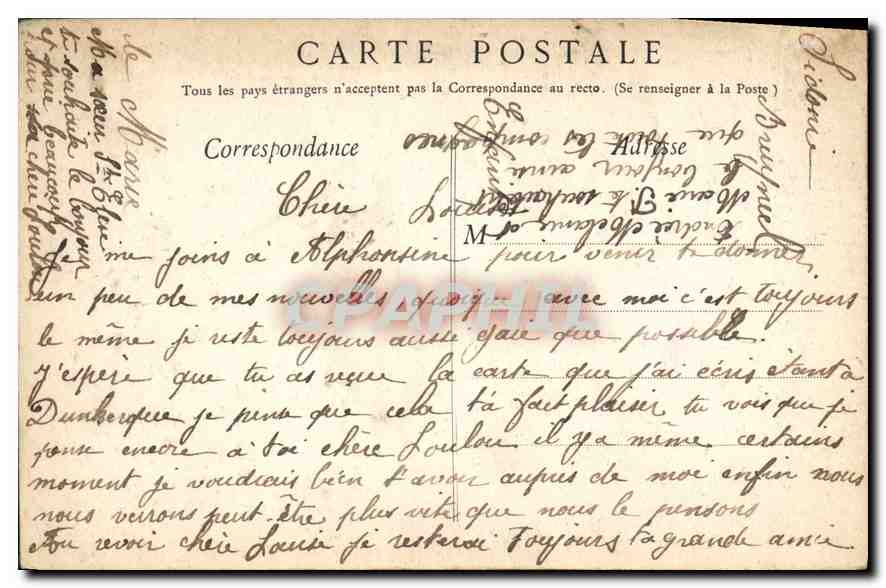 CARTE POSTALE
Tous les pays étrangers n'acceptent pas la Correspondance au recto. (Se renseigner à la Poste)
Correspondance
Adresse
M
Chère Louise
Je me joins à Alphonsine pour venir te donner
un peu de mes nouvelles quoique avec moi c'est toujours
le même je reste toujours aussi gaie que possible.
J'espère que tu as reçue la carte que j'ai écris étant à
Dunkerque je pense que cela t'a fait plaisir tu vois que je
pense encore à toi chère Loulou il y a même certains
moment je voudrais bien t'avoir auprès de moi enfin nous
nous verrons peut-être plus vite que nous le pensons
Au revoir chère Louise je resterai toujours ta grande amie
Sidonie
Bruynuel
Ma sœur Ste
te souhaite le bonjour
et pense beaucoup
sa chère Loulou
Marie te souhaitent
le bonjour ainsi
que toute les compagnes
CPAPHIL